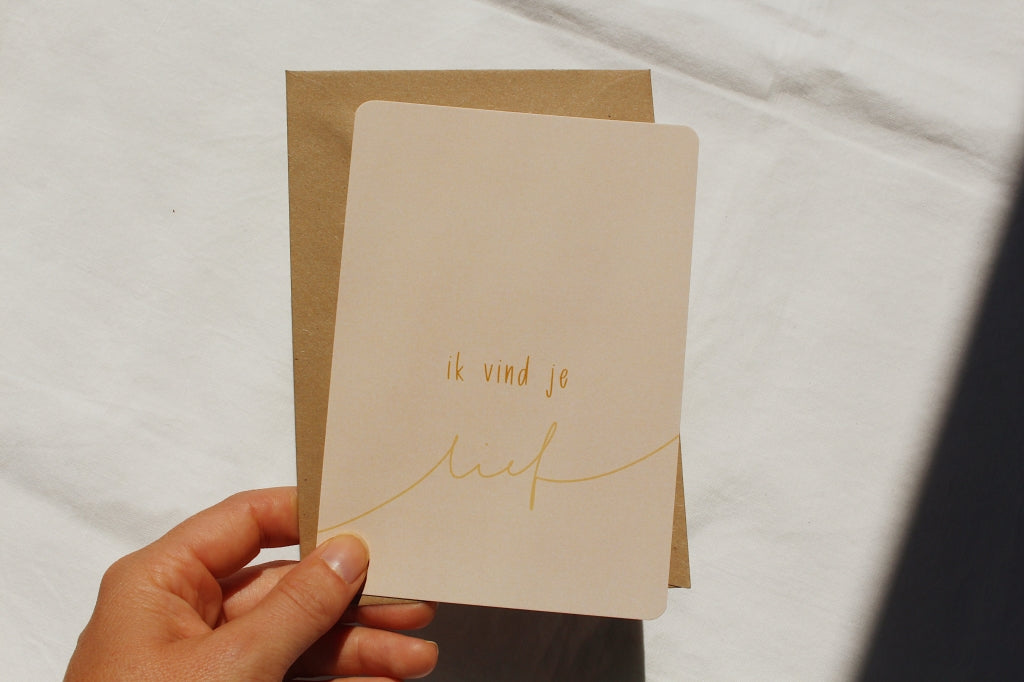 ik vind je
lief